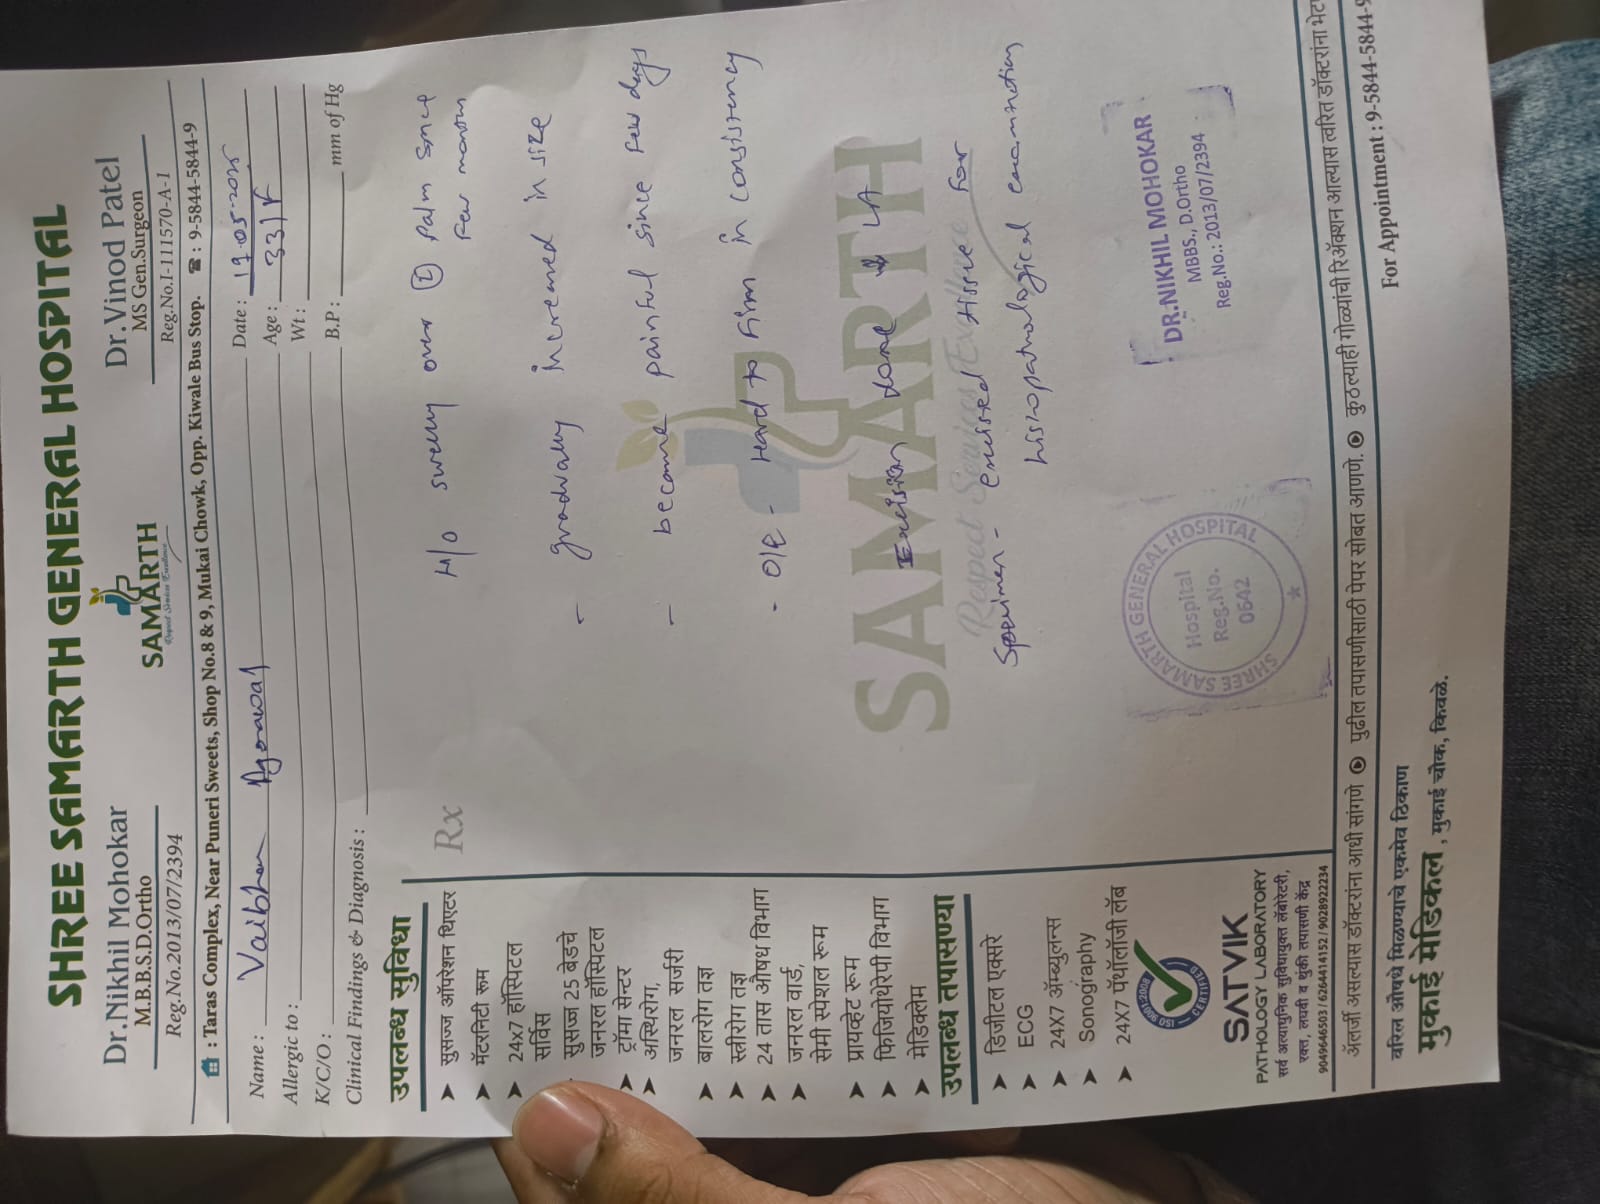 SHREE SAMARTH GENERAL HOSPITAL
Dr.Nikhil Mohokar
M.B.B.S.D.Ortho
Reg.No.2013/07/2394
SAMARTH
Respect Services Excellence
Dr.Vinod Patel
MS Gen.Surgeon
Reg.No.I-111570-A-1
: Taras Complex, Near Puneri Sweets, Shop No.8 & 9, Mukai Chowk, Opp. Kiwale Bus Stop. ☎ : 9-5844-5844-9
Name : Vaibhav Agarwal Date : 17-05-2025
Allergic to : Age : 33/
K/C/O : Wt :
Clinical Findings & Diagnosis : B.P : mm of Hg
उपलब्ध सुविधा
➤ सुसज्ज ऑपरेशन थिएटर
➤ मॅटरनिटी रूम
➤ 24x7 हॉस्पिटल
सर्विस
सुसज्ज 25 बेडचे
जनरल हॉस्पिटल
➤ ट्रॉमा सेन्टर
➤ अस्थिरोग,
जनरल सर्जरी
➤ बालरोग तज्ञ
➤ स्त्रीरोग तज्ञ
➤ 24 तास औषध विभाग
➤ जनरल वार्ड,
सेमी स्पेशल रूम
➤ प्रायव्हेट रूम
➤ फिजियोथेरेपी विभाग
➤ मेडिक्लेम
उपलब्ध तपासण्या
➤ डिजीटल एक्सरे
➤ ECG
➤ 24X7 ॲम्ब्युलन्स
➤ Sonography
➤ 24X7 पॅथॉलॉजी लॅब
ISO 9001:2008
CERTIFIED
SATVIK
PATHOLOGY LABORATORY
सर्व अत्याधुनिक सुविधायुक्त लॅबोरेटरी,
रक्त, लघवी व थुंकी तपासणी केंद्र
9049646503 / 6264414152 / 9028922234
Rx
H/O swelly over palm since
few
- gradually increased in size
- become painful since few days
- O/E - Hard to firm in consistency
Excision done ↓ LA
Specimen - excised tissue for
histopathological examination
SAMARTH
Respect Services Excellence
SHREE SAMARTH GENERAL HOSPITAL
Hospital
Reg.No.
0642
DR.NIKHIL MOHOKAR
MBBS., D.Ortho
Reg.No.: 2013/07/2394
ॲलर्जी असल्यास डॉक्टरांना आधी सांगणे ⦿ पुढील तपासणीसाठी पेपर सोबत आणणे. ⦿ कुठल्याही गोळ्यांची रिॲक्शन आल्यास त्वरित डॉक्टरांना
वरिल औषधे मिळण्याचे एकमेव ठिकाण
मुकाई मेडिकल, मुकाई चौक, किवळे.
For Appointment : 9-5844-5844-9